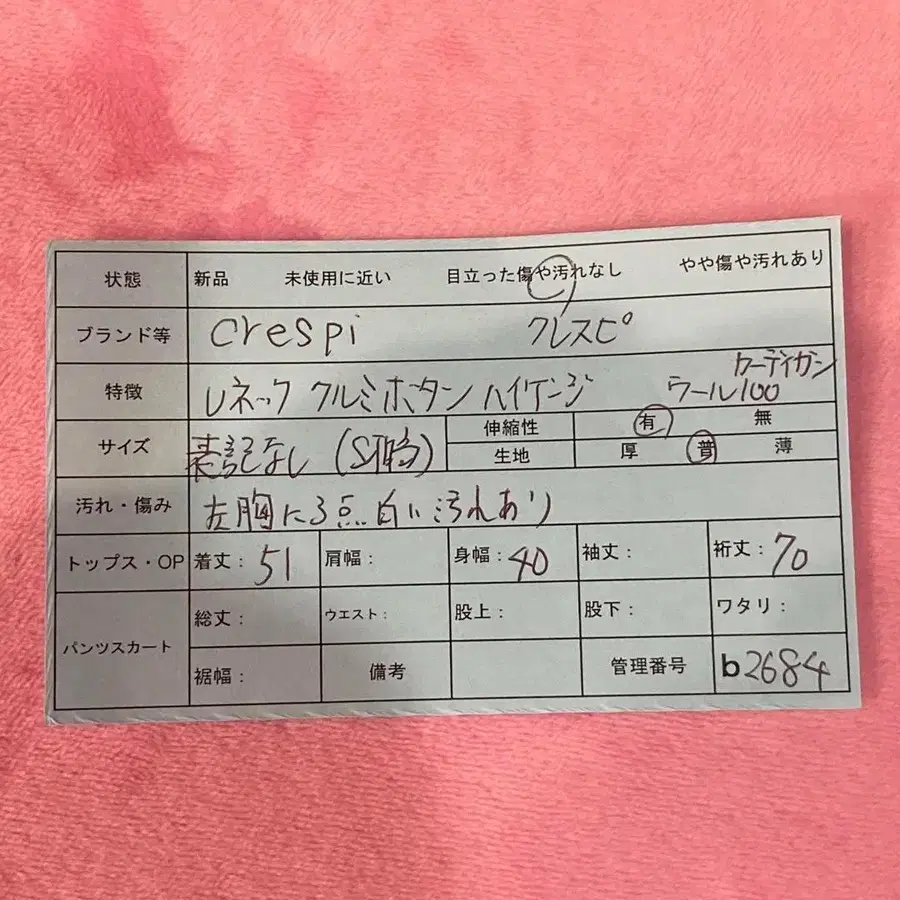 状態 新品 未使用に近い 目立った傷や汚れなし やや傷や汚れあり
ブランド等 crespi クレスピ
カーディガン
特徴 Uネック クルミボタン ハイゲージ ウール100
サイズ 表記なし (S相当) 伸縮性 有 無
生地 厚 普 薄
汚れ・傷み 左胸に3点白い汚れあり
トップス・OP 着丈: 51 肩幅: 身幅: 40 袖丈: 裄丈: 70
パンツスカート 総丈: ウエスト: 股上: 股下: ワタリ:
裾幅: 備考 管理番号 b2684